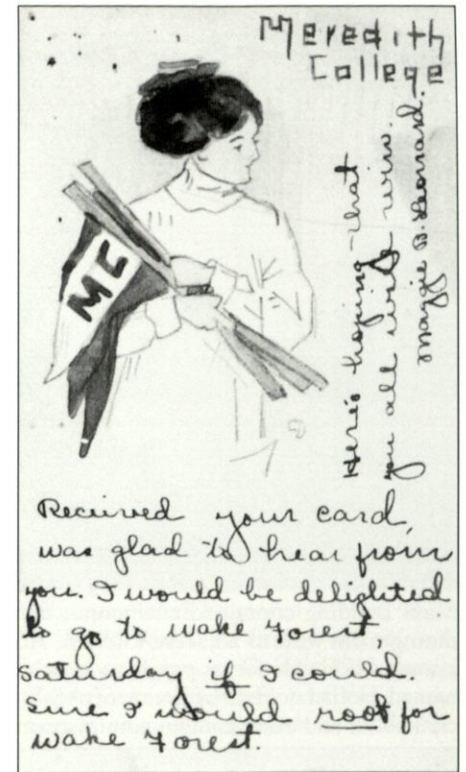 Meredith
College
MC
Here's hoping that
you all will win.
Maggie B. Leonard.
Received your card,
was glad to hear from
you. I would be delighted
to go to Wake Forest,
Saturday if I could.
Sure I would root for
Wake Forest.